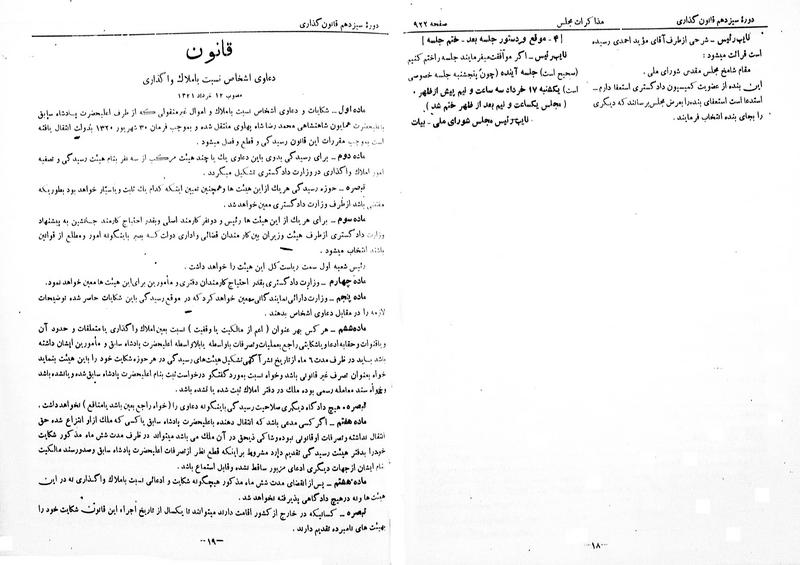 دورهٔ سیزدهم قانون گذاری
مذاکرات مجلس
صفحه ۹۲۲
نایب رئیس ــ شرحی از طرف آقای مؤید احمدی رسیده
است قرائت میشود:
مقام شامخ مجلس مقدس شورای ملی.
این بنده از عضویت کمیسیون دادگستری استعفا دارم ــ
استدعا است استعفای بنده را بعرض مجلس برسانند که دیگری
را بجای بنده انتخاب فرمایند.
[ ۴ ــ موقع و دستور جلسه بعد ــ ختم جلسه ]
نایب رئیس ــ اگر موافقت میفرمایند جلسه را ختم کنیم
(صحیح است) جلسه آینده (چون پنجشنبه جلسه خصوصی
است) یکشنبه ۱۷ خرداد سه ساعت و نیم پیش از ظهر.
( مجلس یکساعت و نیم بعد از ظهر ختم شد )
نایب رئیس مجلس شورای ملی ــ بیات
ــ۱۸ــ
دورهٔ سیزدهم قانون گذاری
قانون
دعاوی اشخاص نسبت باملاک واگذاری
مصوب ۱۲ خرداد ۱۳۲۱
ماده اول ــ شکایات و دعاوی اشخاص نسبت باملاک و اموال غیرمنقولی که از طرف اعلیحضرت پادشاه سابق
باعلیحضرت همایون شاهنشاهی محمدرضا شاه پهلوی منتقل شده و بموجب فرمان ۳۰ شهریور ۱۳۲۰ بدولت انتقال یافته
است بموجب مقررات این قانون رسیدگی و قطع و فصل میشود.
ماده دوم ــ برای رسیدگی بدوی باین دعاوی یک یا چند هیئت مرکب از سه نفر بنام هیئت رسیدگی و تصفیه
امور املاک واگذاری در وزارت دادگستری تشکیل میگردد.
تبصره ــ حوزه رسیدگی هریک از این هیئت ها و همچنین تعیین اینکه کدام یک ثابت و یا سیار خواهد بود بطوریکه
مقتضی باشد از طرف وزارت دادگستری معین خواهد شد.
ماده سوم ــ برای هر یک از این هیئت ها رئیس و دو نفر کارمند اصلی و بقدر احتیاج کارمند جانشین به پیشنهاد
وزارت دادگستری از طرف هیئت وزیران بین کارمندان قضائی و اداری دولت که بصیر باینگونه امور و مطلع از قوانین
باشند انتخاب میشود.
رئیس شعبه اول سمت ریاست کل این هیئت را خواهد داشت.
ماده چهارم ــ وزارت دادگستری بقدر احتیاج کارمندان دفتری و مأمورین برای این هیئت ها معین خواهد نمود.
ماده پنجم ــ وزارت دارائی نمایندگانی معین خواهد کرد که در موقع رسیدگی باین شکایات حاضر شده توضیحات
لازمه را در مقابل دعاوی اشخاص بدهند.
ماده ششم ــ هر کس بهر عنوان (اعم از مالکیت یا وقفیت) نسبت بعین املاک واگذاری یا متعلقات و حدود آن
و یا قنوات و حقابه ادعا و یا شکایتی راجع بعملیات و تصرفات باواسطه یا بلاواسطه اعلیحضرت پادشاه سابق و مأمورین ایشان داشته
باشد باید در ظرف مدت ۶ ماه از تاریخ نشر آگهی تشکیل هیئت های رسیدگی در هر حوزه شکایت خود را باین هیئت بنماید
خواه بعنوان تصرف غیر قانونی باشد و خواه نسبت بمورد گفتگو درخواست ثبت بنام اعلیحضرت پادشاه سابق شده و یا نشده باشد
و خواه سند معامله رسمی بوده ملک در دفتر املاک ثبت شده یا نشده باشد.
تبصره ــ هیچ دادگاه دیگری صلاحیت رسیدگی باینگونه دعاوی را (خواه راجع بعین باشد یا منافع) نخواهد داشت.
ماده هفتم ــ اگر کسی مدعی باشد که انتقال دهنده باعلیحضرت پادشاه سابق یا کسی که ملک از او انتزاع شده حق
انتقال نداشته و تصرفات او قانونی نبوده و شاکی ذیحق در آن ملک می باشد میتواند در ظرف مدت شش ماه مذکور شکایت
خود را بدفتر هیئت رسیدگی تقدیم دارد مشروط بر اینکه قطع نظر از تصرفات اعلیحضرت پادشاه سابق و صدور سند مالکیت
بنام ایشان از جهات دیگری ادعای مزبور ساقط نشده و قابل استماع باشد.
ماده هشتم ــ پس از انقضای مدت شش ماه مذکور هیچگونه شکایت و ادعائی نسبت باملاک واگذاری نه در این
هیئت ها و نه در هیچ دادگاهی پذیرفته نخواهد شد.
تبصره ــ کسانیکه در خارج از کشور اقامت دارند میتوانند تا یکسال از تاریخ اجراء این قانون شکایت خود را
بهیئت های نامبرده تقدیم دارند.
ــ۱۹ــ